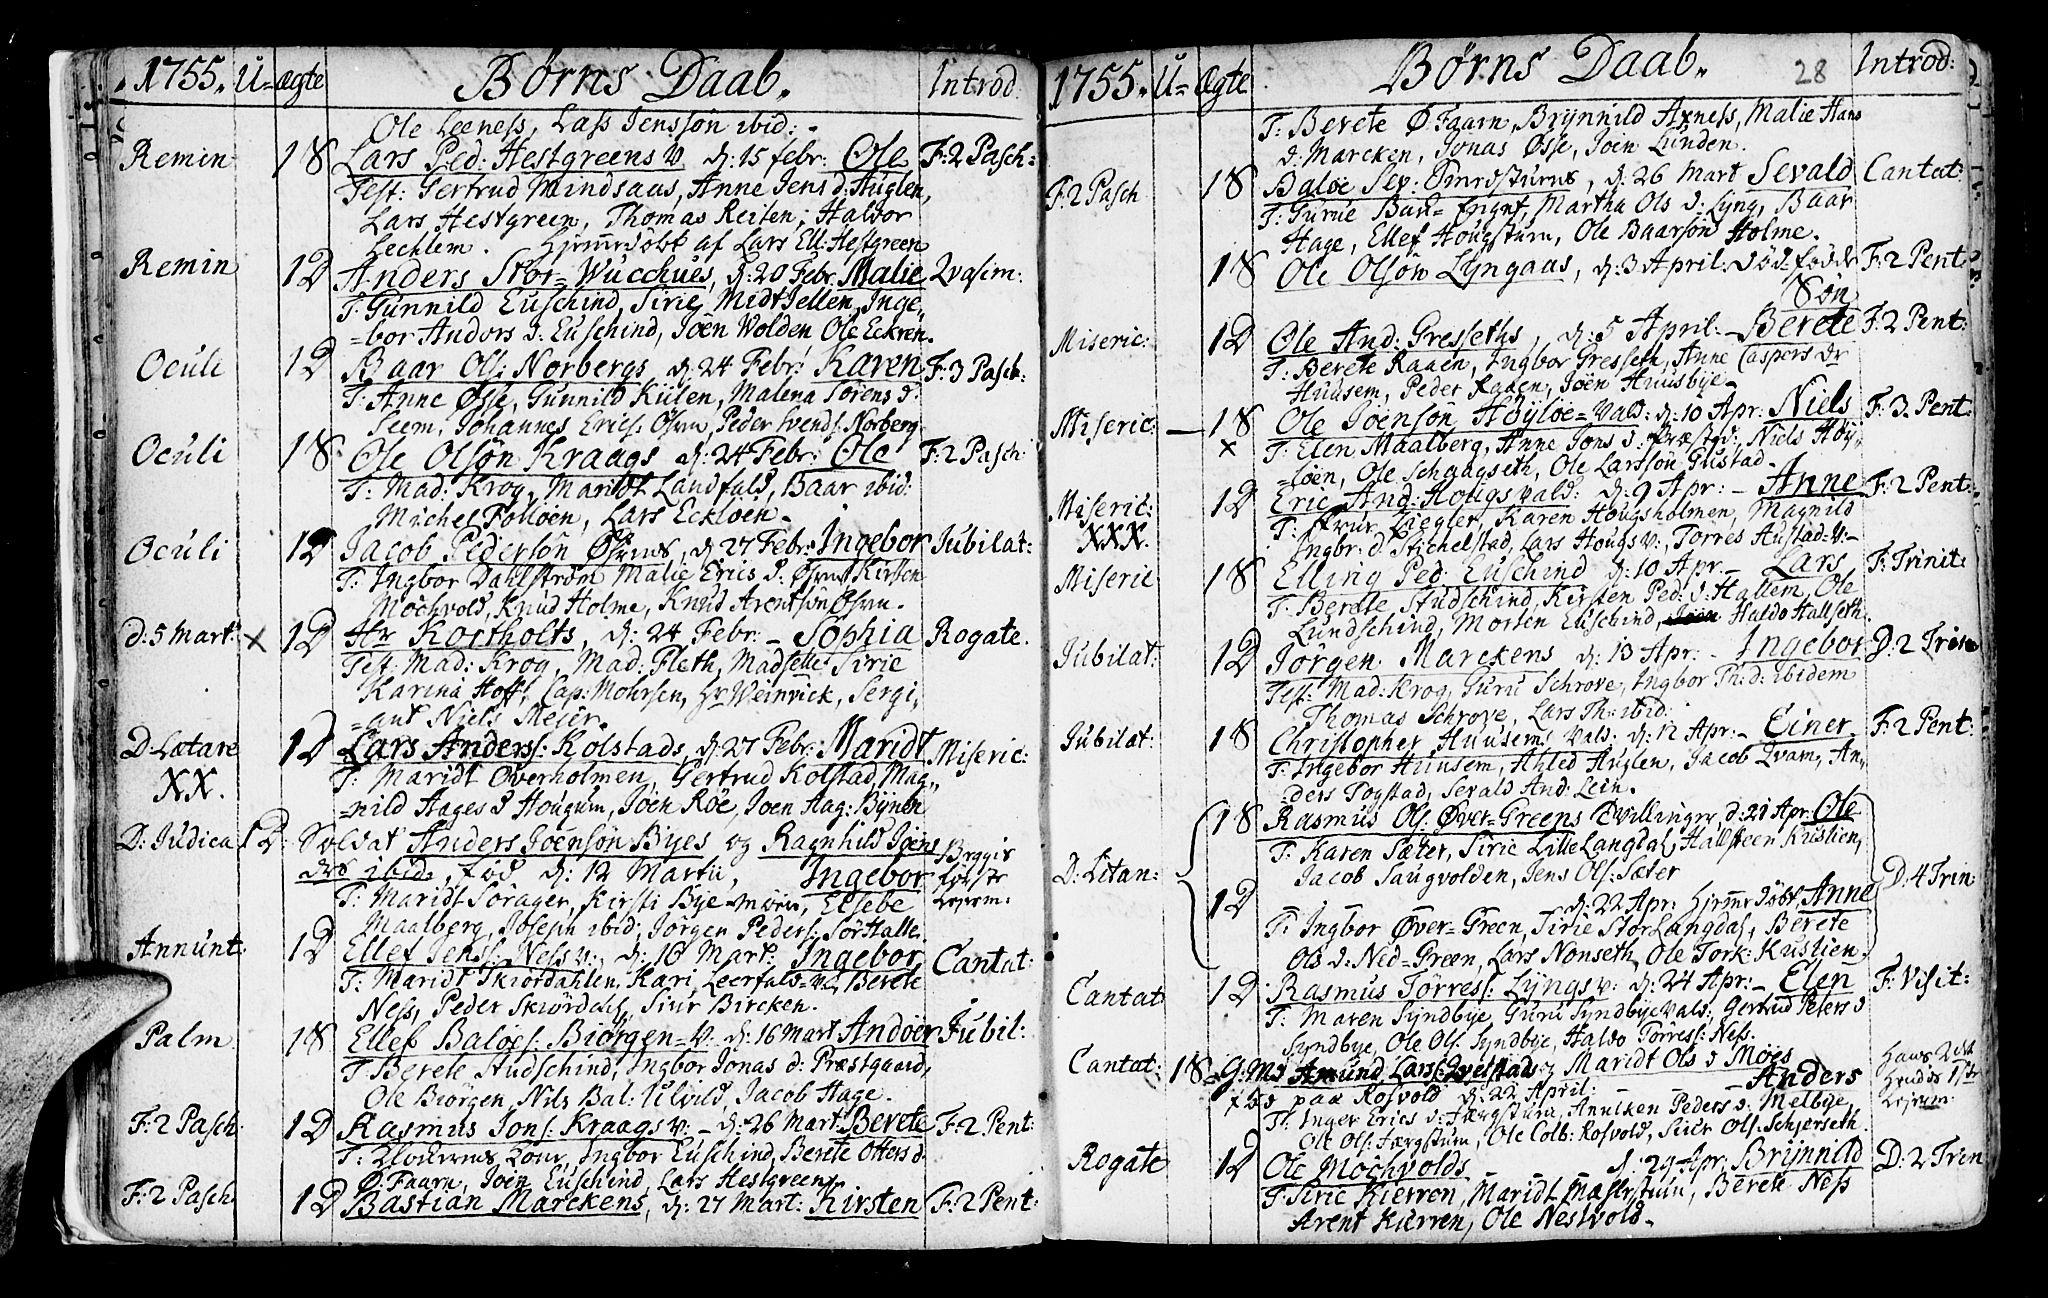 1755. U= Ægte Børns Daab. Introd:
Ole Leeness, Lass Jensson ibid:
Remin 1 S Lars Ped: Hestgreens v. d: 15 febr: Ole F: 2 Pasch=
Test: Gertrud Mindsaas, Anne Jens d: Auglen,
Lars Hestgreen, Thomas Reiten, Haldor
Lechlem. Hjemedøbt af Lars Ell: Hestgreen
Remin 1 D Anders Stor=Wucchues, d: 20 Febr. Malie Qvasim:
T: Gunnild Euschind, Sirie MidtJellen, Inge=
=bor Andors d: Euschind, Joen Volden Ole Eckren.
Oculi 1 D Baar Ols: Norbergs, d: 24 Febr: Karen F: 3 Pasch:
T: Anne Øsse, Gunnild Kiilen, Malena Sørens d:
Seem, Johannes Erics: Ørn, Peder Svends: Norberg.
Oculi 1 S Ole Olsøn Kraags d: 24 Febr: Ole F: 2 Pasch:
T: Mad: Krog, Maridt Landfald, Baar ibid:
Michel Folloen, Lars Eckloen.
Oculi 1 D Jacob Pedersøn Ørns, d: 27 Febr: Ingebor Jubilat:
T: Ingbor Dahlstrøm Malie Erics d: Kirsten
Mochvold, Knud Holme, Knud Arentsøn
d: 5 Mart: x 1 D Hr Kortholts, d: 24 Febr: - Sophia Rogate.
Test: Mad: Krog, Mad: Fleth, Madselle Sirie
Karina Hoff, Cap: Mohrsen, Hr Weinrick, Sergi=
=ant Niels Mejer.
D: Lætare 1 D Lars Anders: Kolstads, d: 27 Febr: Maridt Miseric:
XX. T: Maridt Overholmen, Gertrud Kolstad, Mag=
=nild Hages d Hougum, Joen Røe, Joen Aag: Bÿnen
D: Judica 1 D. Soldat Anders Joensøn Byes og Ragnhild Joens Beggis
dtr ibid:, fød d: 12 Martii, Ingebor første
T: Maridt Sørager, Kirsti Bye Elsebe Lejerm:
Maalberg, Joseph ibid, Jørgen Peders: SørHalle.
Annunt: 1 D Ellef Jens: Ness v: d: 16 Mart: Ingebor Cantat:
T: Maridt Skiørdahlen, Kari Leerfals=v: Berete
Ness, Peder Skiørd: Siur Bircken.
Palm 1 S Ellef Baloes: Biørgen=v: d: 16 Mart Andoer Jubil:
T: Berete Studschind, Ingbor Jonas d: Præstgaard,
Ole Biørgen, Nils Bal: Ulvild, Jacob Hage.
F: 2 Pasch: 1 D Rasmus Jons: Kraags v: - d: 26 Mart: Berete F: 2 Pent:
T: Ingbor Euschind, Berete Otters d:
Ø: Faarn, Joen Euschind, Lars Hestgreen
F: 2 Pasch: 1 D Bastian Marckens, d: 27 Mart: Kirsten F: 2 Pent:
1755. U= Ægte Børns Daab. 28 Introd:
T: Berete Ø: Faarn, Brynnild Axness, Malie Hans
d: Marcken, Jonas Øsse, Joen Lunden.
F: 2 Pasch 1 S Baloe Sev: d: 26 Mart Sevald Cantat:
T: Guru Martha Ols d: Lyng, Baar
Hage, Ellef Hougsturn, Ole Baarsøn Holme.
1 S Ole Olsøn Lyngaas, d: 3 April: død=fødde F: 2 Pent:
Søn
Miseric: 1 D Ole And: Gresseths, d: 5 April: - Berete F: 2 Pent:
T: Berete Raaen, Ingbor Gresseth, Anne Caspers dr
Huusem, Peder Raaen, Joen Huusbye
Miseric: - 1 S Ole Joensøn Høyloe=vald: d: 10 Apr: Niels F: 3 Pent:
x T: Elen Maalberg, Anne Jons d: Præstgd:, Niels Høy=
=loen, Ole Schaagseth, Ole Larssøn Gustad.
Miseric: 1 D Eric And: Hougs vald: d: 9 Apr: - Anne F: 2 Pent:
XXX. T: Frur Ziegler, Karen Hougsholmen, Magnild
Ingbr: d: Stichelstad, Lars Hougs v:, Torres Austad=v: -
Miseric 1 S Elling Ped: Euschind d: 10 Apr: - Lars F: Trinit:
T: Berete Studschind, Kirsten Ped: d: Hallem, Ole
Lundschind, Morten Euschind, Haldo Hallseth.
Jubilat: 1 D Jørgen Marckens d: 13 Apr: - Ingebor D: 2 Trin
Test: Mad: Krog, Guru Schrove, Ingbor Th: d: ibidem
Thomas Schrove, Lars Th: ibid:
Jubilat: 1 S Christopher Huusems vald: d: 12 Apr: - Einer F: 2 Pent:
T: Ingebor Huusem, Ahled Auglen, Jacob Qvam, An=
=ders Togstad, Sevald And: Lein.
D: Litan: 1 S Rasmus Ols: Øver=Greens Tvillinger d: 21 Apr: Ole D: 4 Trin:
T: Karen Sæter, Sirie LilleLangdal, Hallsteen Kustien,
Jacob Saugvolden, Jens Ols: Sæter
1 D d: 22 Apr: Hjemedøbt, Anne
T: Ingbor Øver=Green, Sirie StorLangdal, Berete
Ols d: Ned=Green, Lars Nonseth, Ole Tork: Kustien.
Cantat 1 D Rasmus Torress: Lyngs v: d: 24 Apr: - Elen F: Visit:
T: Maren Syndbye, Guru SyndbyeVald: Gertrud Peters d
Syndbye, Ole Ols: Syndbye, Haldo Torress: Ness.
Cantat: 1 S= G: Md Amund Larss: Qvelstads, Maridt Ols d Møes Hans 2det
fød paa Rosvold d: 22 April: - - - Anders Hendes 1ste
T: Inger Erics d: Færgsturn, Anniken Peders d: Melbye, Lejerm:
Ole Ols: Færgsturn, Ole Colb: Rosvold, Siur Ols: Schjerseth.
Rogate 1 D Ole Mochvolds - - d: 29 Apr: Brynnild D: 2 Trin
T: Sirie Kierren, Maridt Berete Ness
Arent Kierren, Ole Nestvold.